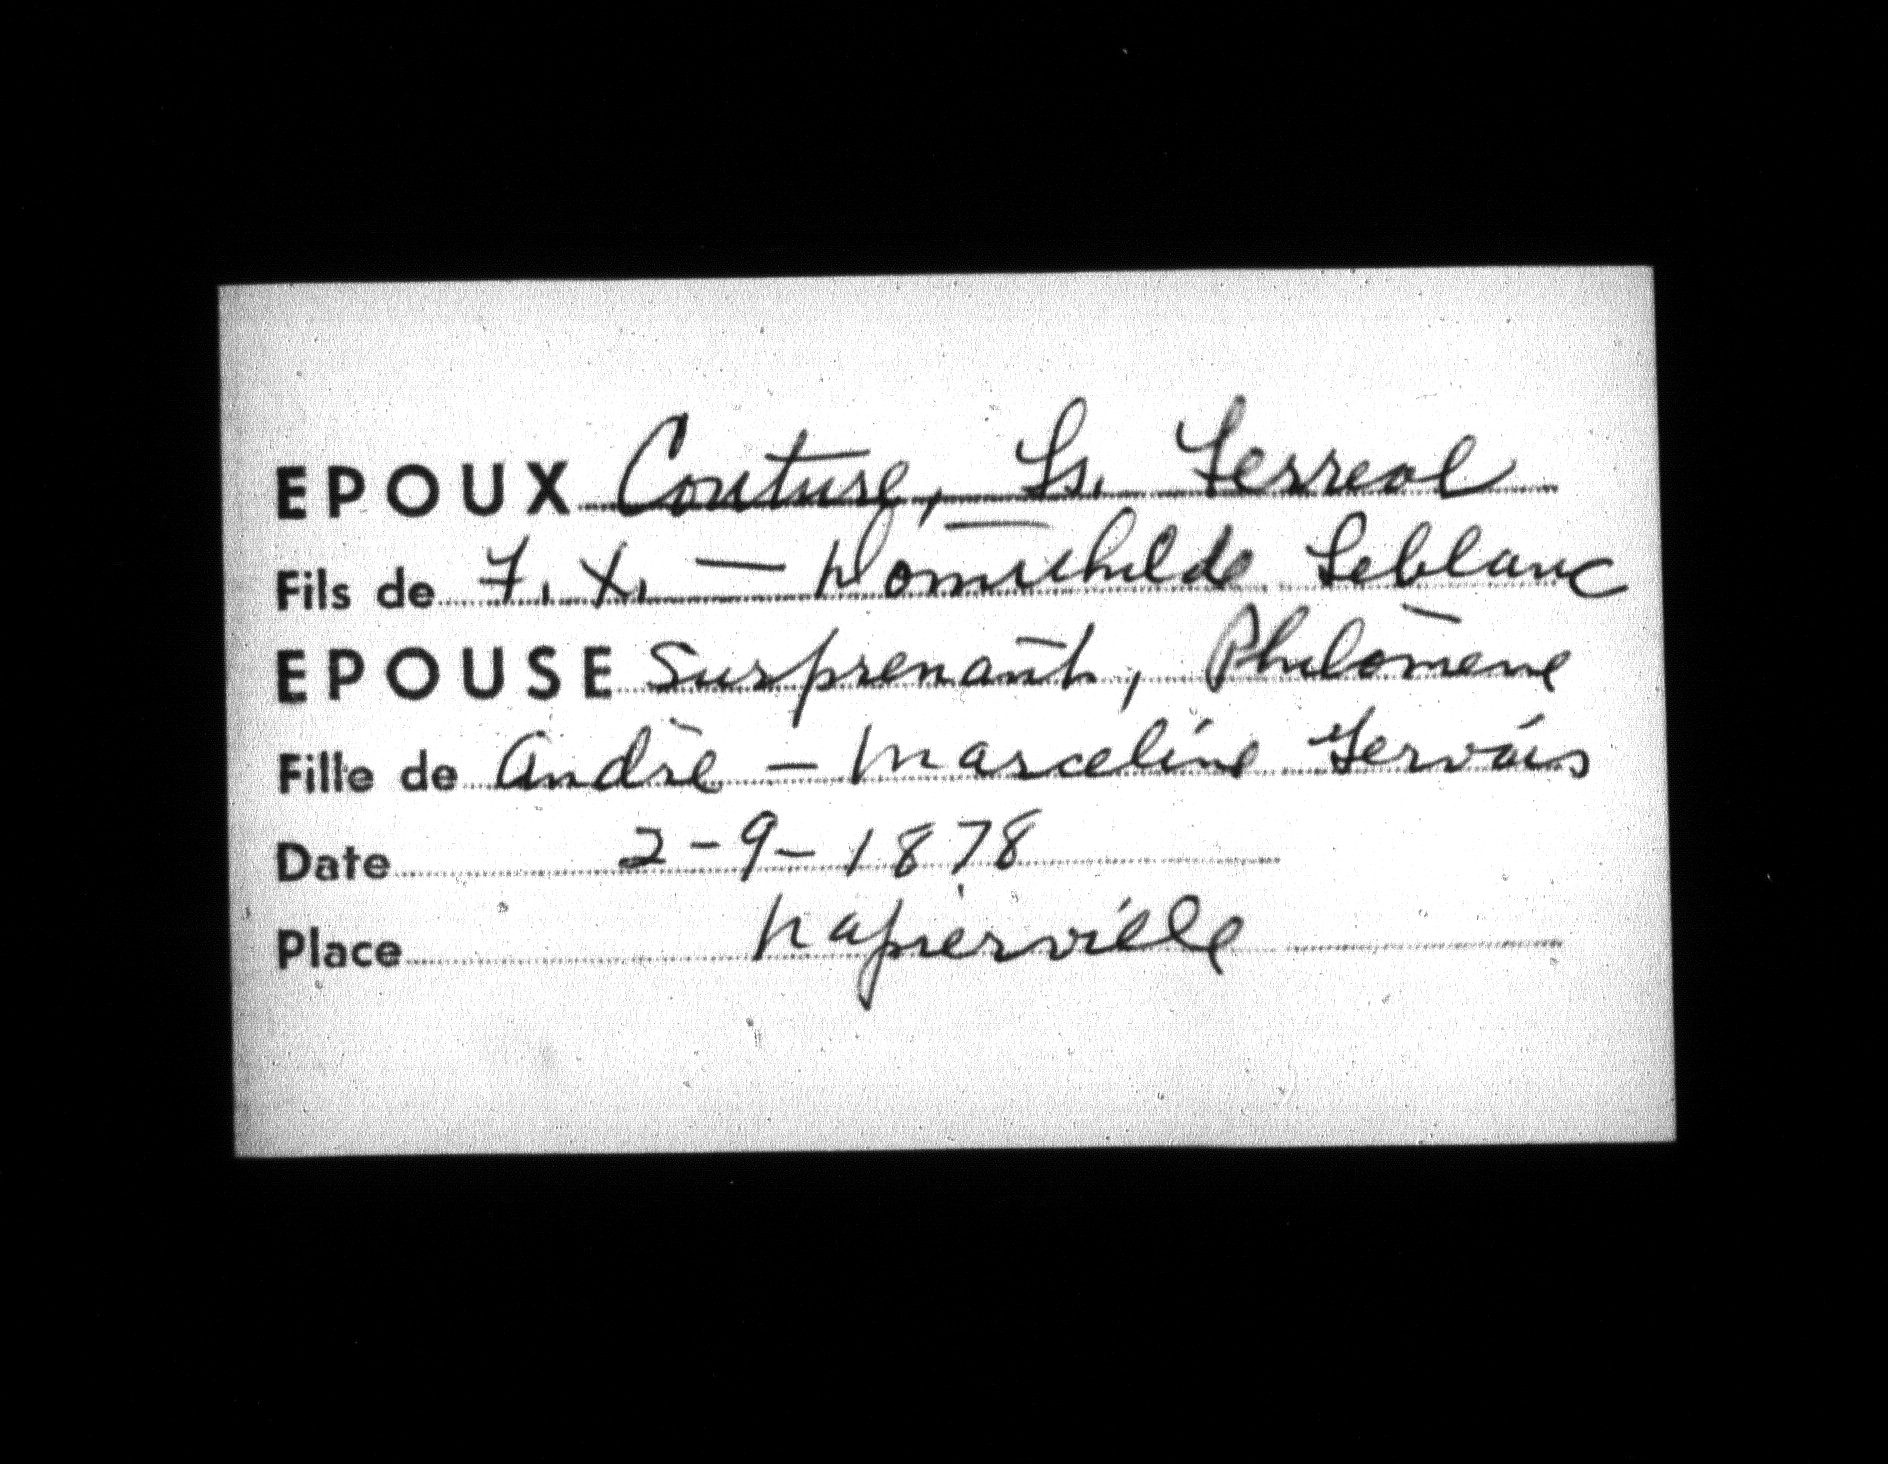 EPOUX Couture, Ls. Ferreol
Fils de F. X. — Domithilde Leblanc
EPOUSE Surprenant, Philomène
Fille de André — Marceline Gervais
Date 2-9-1878
Place Napierville